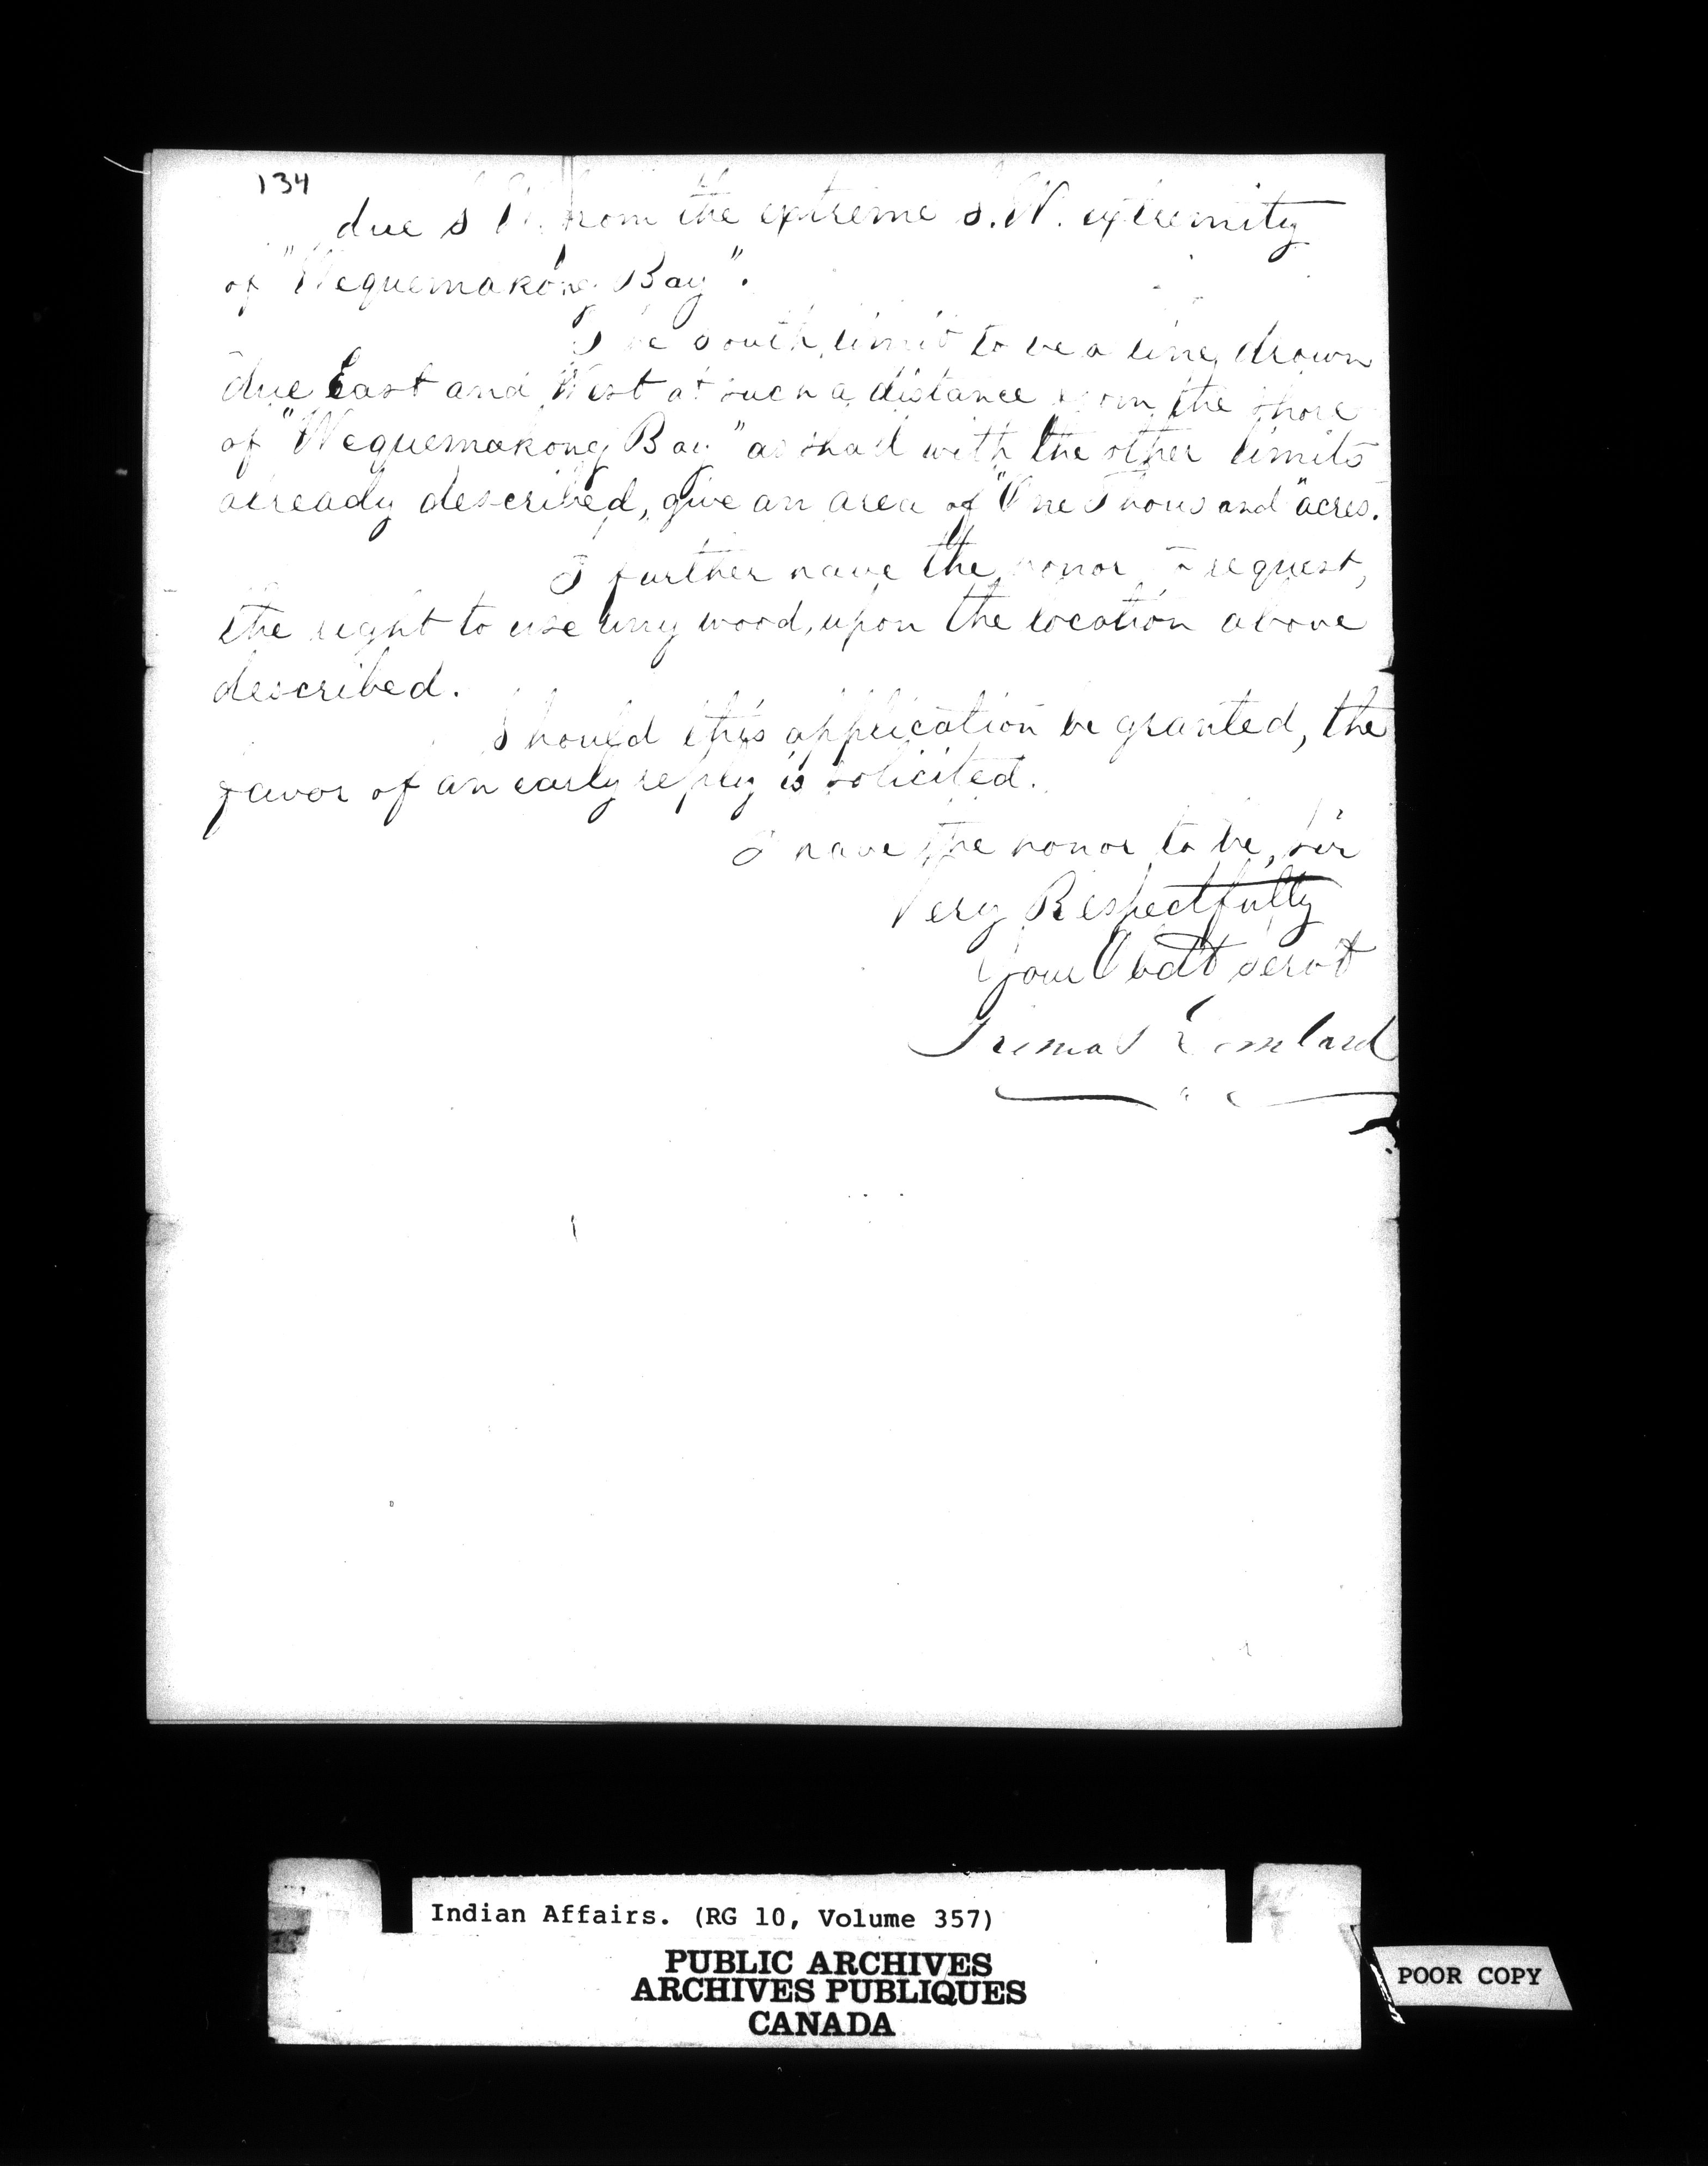 134
due S W. from the extreme S.W. extremity
of "Wequemakong Bay".
The South limit to be a line drawn
due East and West at such a distance from the shore
of "Wequemakong Bay" as shall with the other limits
already described, give an area of "One Thousand" acres.
I further have the honor to request,
the right to use any wood, upon the location above
described.
Should this application be granted, the
favor of an early reply is solicited.
I have the honor to be, Sir
Very Respectfully
Your Obdt servt
Indian Affairs. (RG 10, Volume 357)
PUBLIC ARCHIVES
ARCHIVES PUBLIQUES
CANADA
POOR COPY